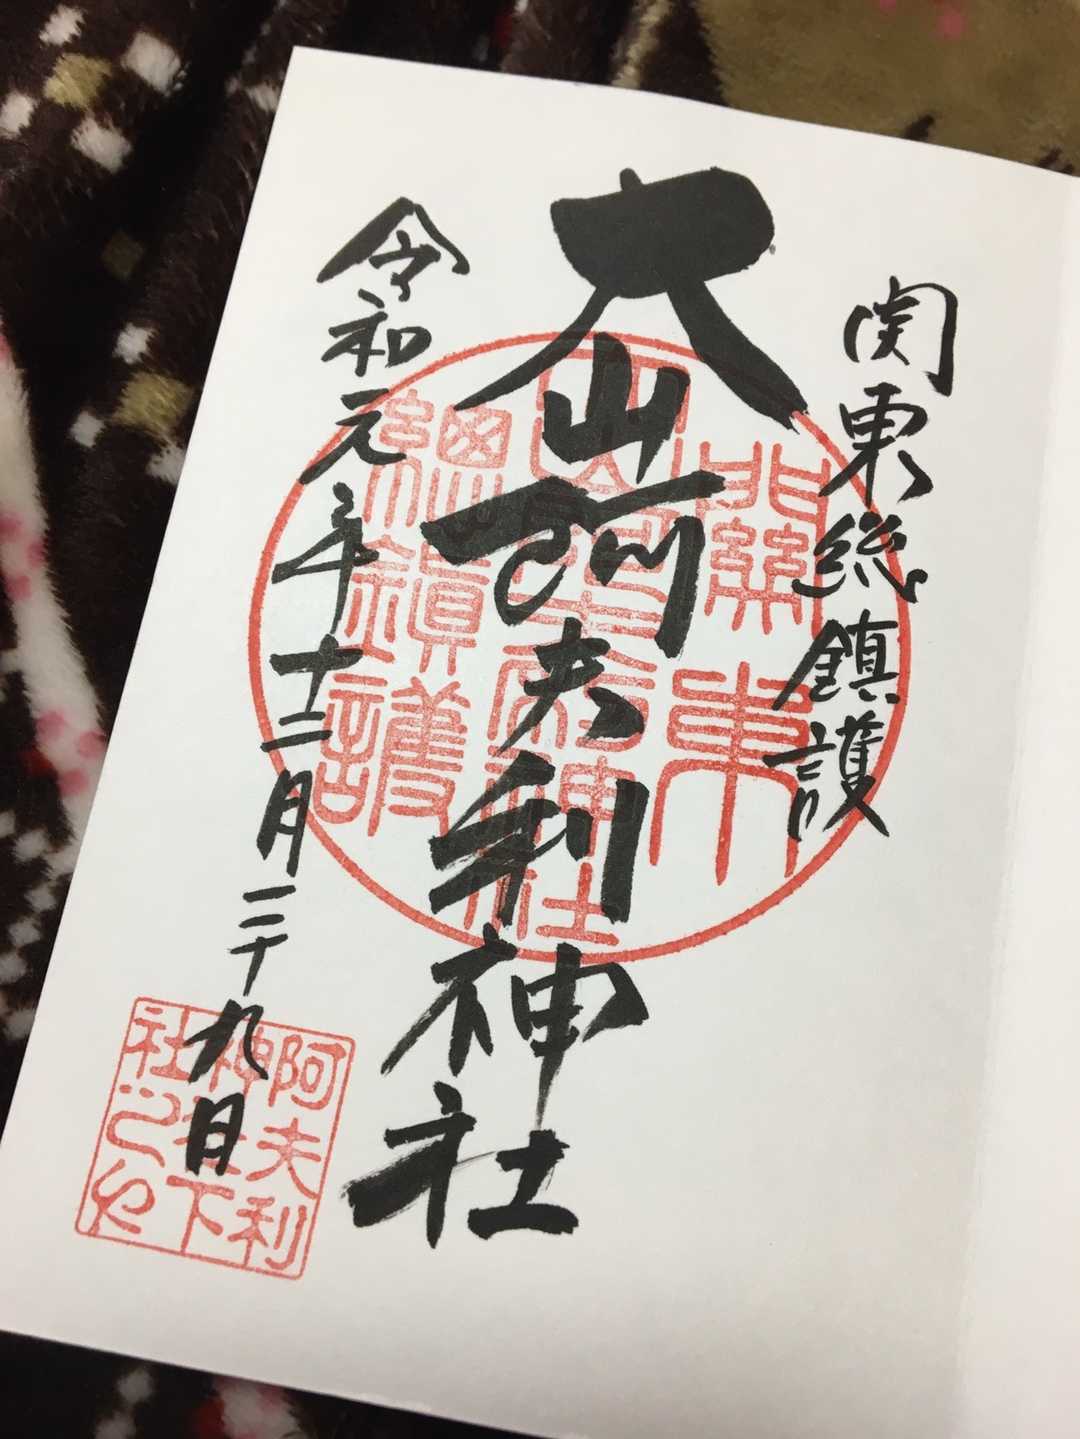 関東総鎮護
大山阿夫利神社
令和元年十二月二十九日
關東
總鎮護
阿夫利
神社下
社之印